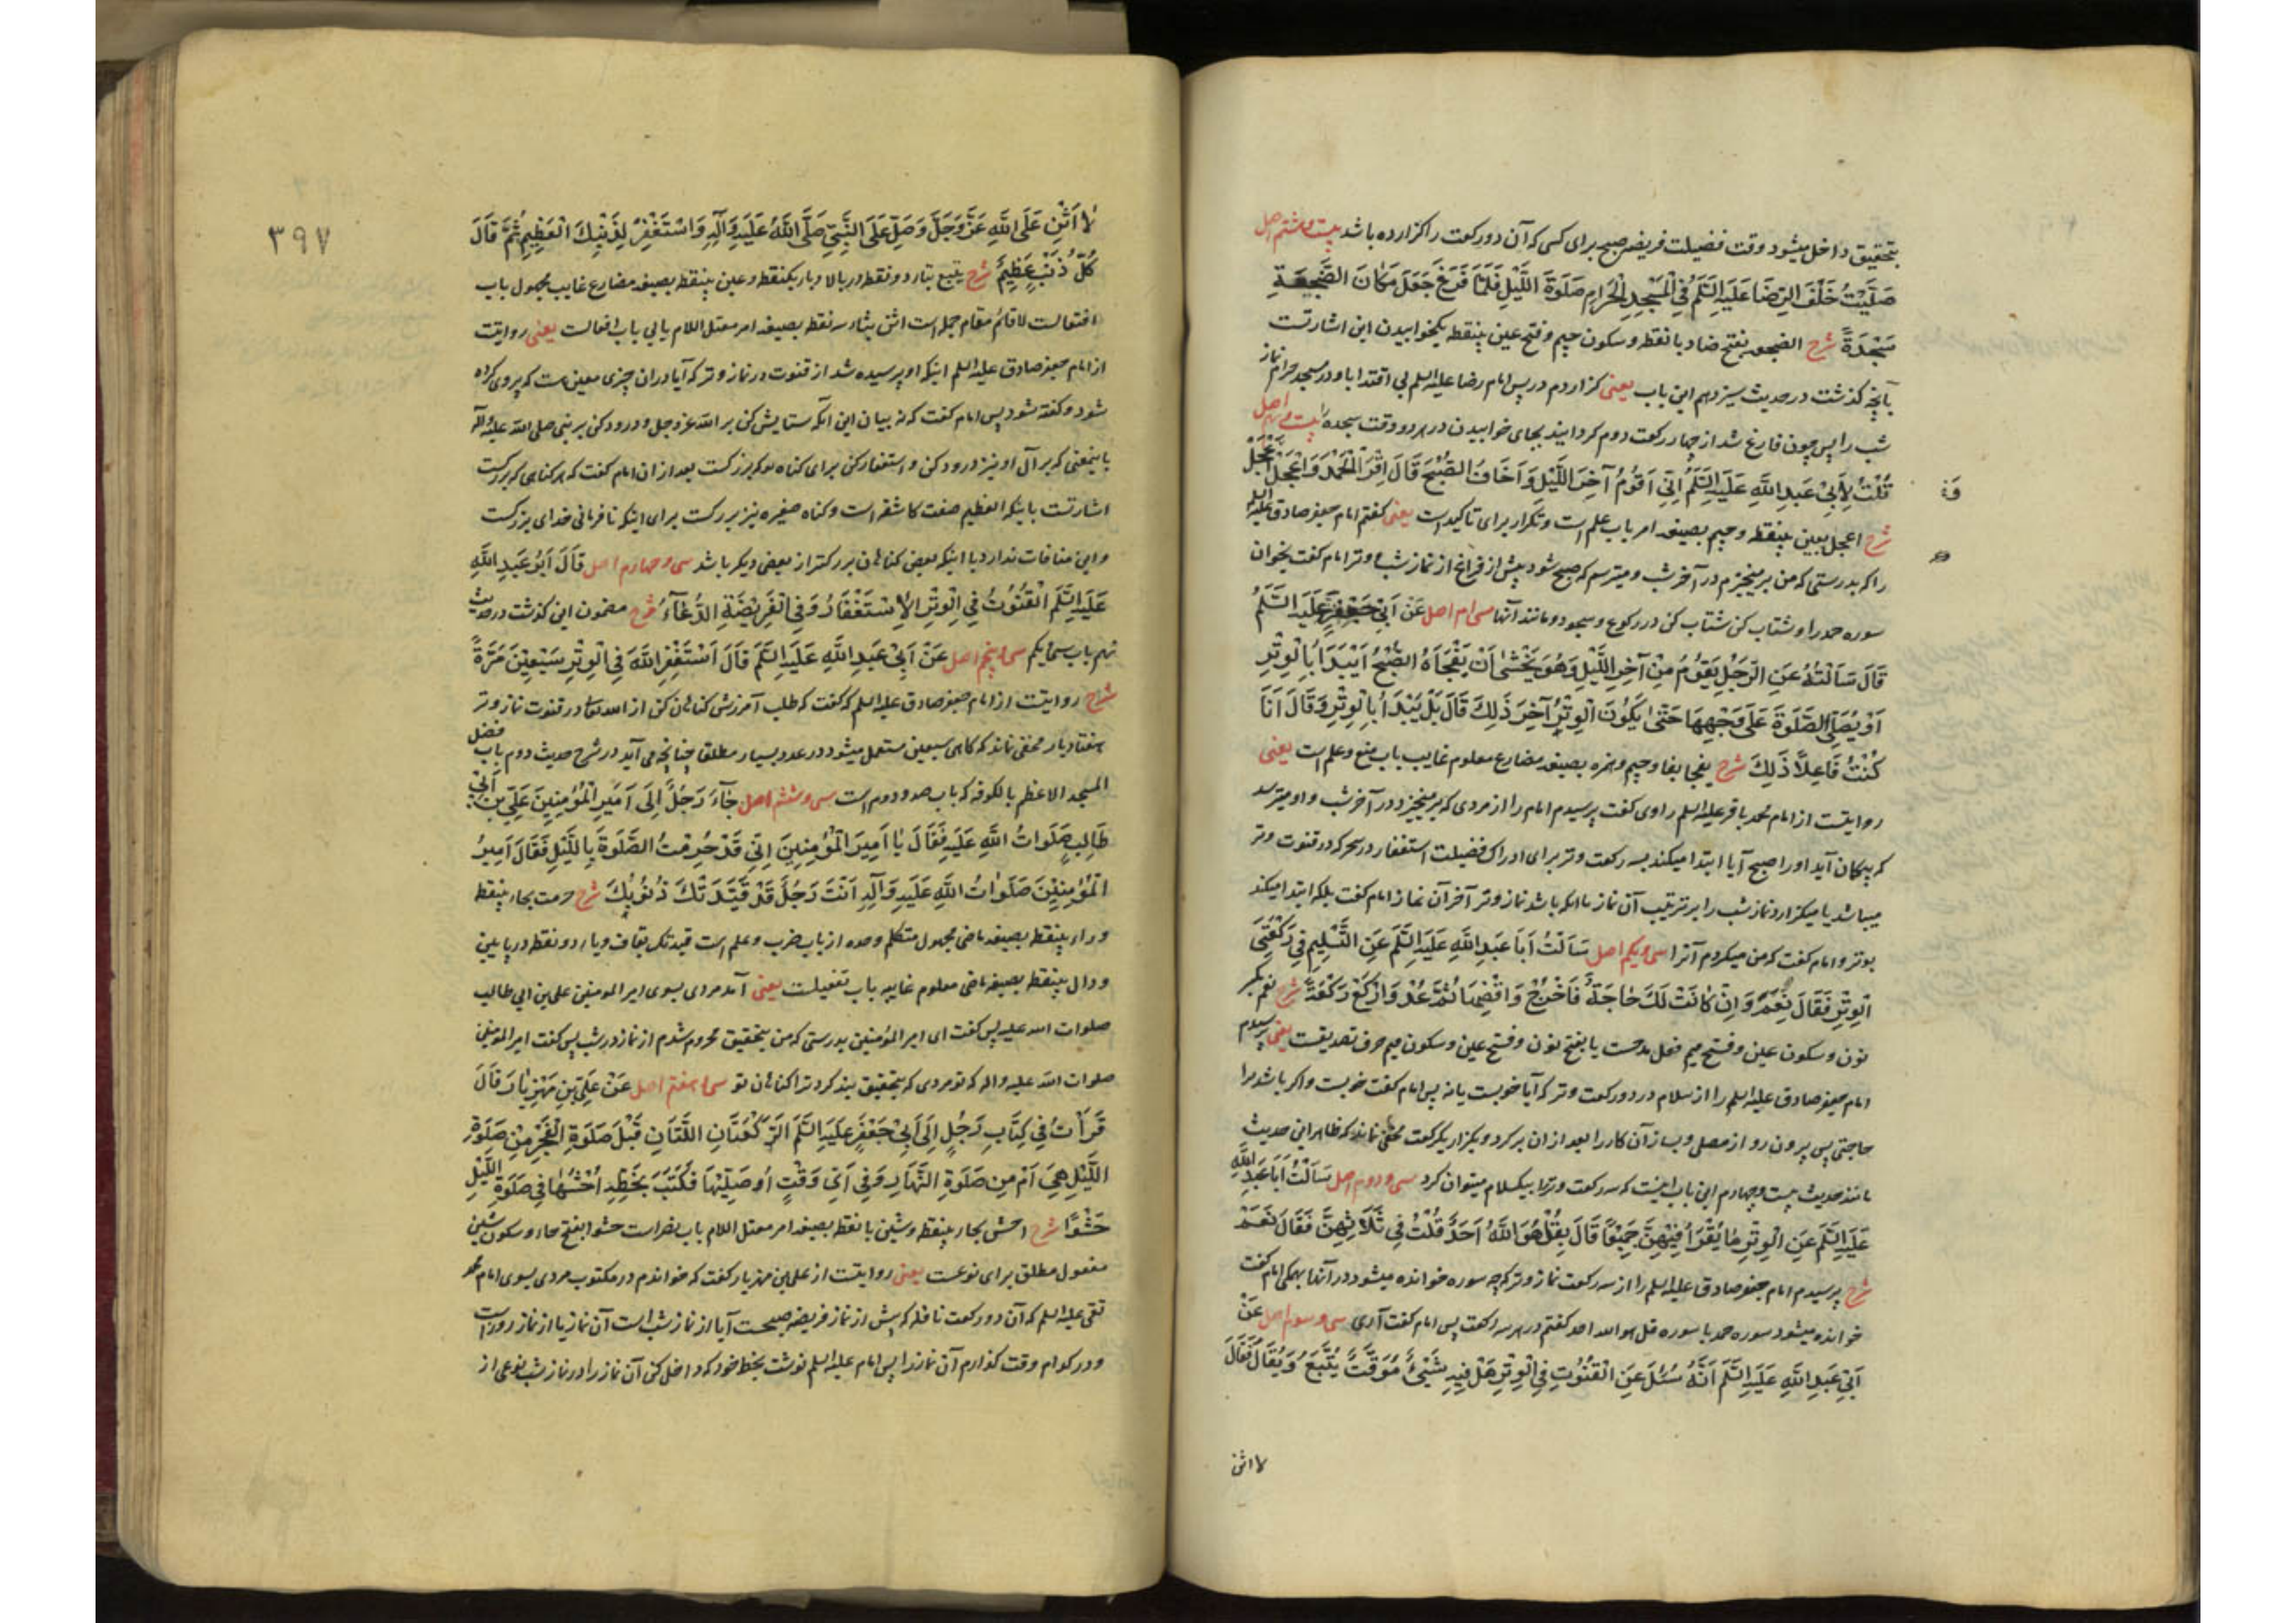 بتحقیق داخل میشود وقت فضیلت فریضه صبح برای کسی که آن دو رکعت را کزارده باشد بیست و هشتم اصل
صَلَّیْتُ خَلْفَ الرِّضَا عَلَیْهِ السَّلَمُ فِی الْمَسْجِدِ الْحَرَامِ صَلَوةَ اللَّیْلِ فَلَمَّا فَرَغَ جَعَلَ مَکَانَ الضَّجْعَةِ
سَجْدَةً شرح الضجعه بفتح ضاد با نقطه و سکون جیم و فتح عین بینقطه یکخوابیدن این اشارتست
بآنچه کذشت در حدیث سیزدهم این باب یعنی کزاردم در پس امام رضا علیه السلم بی اقتدا باو در مسجد حرام نماز
شب را پس چون فارغ شد از چهار رکعت دوم کردانید بجای خوابیدن در هر دو وقت سجده را بیست و نهم اصل
قُلْتُ لِأَبِی عَبْدِ اللَّهِ عَلَیْهِ السَّلَمُ اِنِّی اَقُومُ آخِرَ اللَّیْلِ وَ اَخَافُ الصُّبْحَ قَالَ اقْرَءِ الْحَمْدَ وَ اعْجَلْ اعْجَلْ
شرح اعجل بعین بینقطه و جیم بصیغه امر باب علم است و تکرار برای تاکید است یعنی کفتم امام جعفر صادق علیه السلم
را که بدرستی که من برمیخیزم در آخر شب و میترسم که صبح شود پیش از فراغ از نماز شب و وتر امام کفت بخوان
سوره حمد را و شتاب کن شتاب کن در رکوع و سجود و مانند آنها سی ام اصل عَنْ اَبِی جَعْفَرٍ عَلَیْهِ السَّلَمُ
قَالَ سَاَلْتُهُ عَنِ الرَّجُلِ یَقُومُ مِنْ آخِرِ اللَّیْلِ وَ هُوَ یَخْشٰی اَنْ یَفْجَأَهُ الصُّبْحُ اَیَبْدَأُ بِالْوِتْرِ
اَوْ یُصَلِّی الصَّلَوةَ عَلَی وَجْهِهَا حَتّٰی یَکُونَ الْوِتْرُ آخِرَ ذَلِکَ قَالَ بَلْ یَبْدَأُ بِالْوِتْرِ وَ قَالَ اَنَا
کُنْتُ فَاعِلاً ذَلِکَ شرح یفجا بفا و جیم و همزه بصیغه مضارع معلوم غایب باب منع و علم است یعنی
روایتست از امام محمد باقر علیه السلم راوی کفت پرسیدم امام را از مردی که برمیخیزد در آخر شب و او میترسد
که بیکمان آید او را صبح آیا ابتدا میکند بسه رکعت وتر برای ادراک فضیلت استغفار در سحر که در قنوت وتر
میباشد یا میکزارد نماز شب را بر ترتیب آن نماز تا آنکه باشد نماز وتر آخر آن نماز امام کفت بلکه ابتدا میکند
بوتر و امام کفت که من میکردم آنرا سی و یکم اصل سَاَلْتُ اَبَا عَبْدِ اللَّهِ عَلَیْهِ السَّلَمُ عَنِ التَّسْلِیمِ فِی رَکْعَتَیِ
الْوِتْرِ فَقَالَ نِعْمَ وَ اِنْ کَانَتْ لَکَ حَاجَةٌ فَاخْرُجْ وَ اقْضِهَا ثُمَّ عُدْ وَ ارْکَعْ رَکْعَةً شرح نعم بکسر
نون و سکون عین و فتح میم فعل مدحست یا بفتح نون و فتح عین و سکون میم حرف تصدیقست یعنی پرسیدم
امام جعفر صادق علیه السلم را از سلام در دو رکعت وتر که آیا خوبست یا نه پس امام کفت خوبست و اکر باشد ترا
حاجتی پس بیرون رو از مصلی و بساز آن کار را بعد از ان برکرد و بکزار یکرکعت مخفی نماند که ظاهر این حدیث
مانند حدیث بیست و چهارم این باب اینست که سه رکعت وتر را بیکسلام میتوان کرد سی و دوم اصل سَاَلْتُ اَبَا عَبْدِ اللَّهِ
عَلَیْهِ السَّلَمُ عَنِ الْوِتْرِ مَا یُقْرَأُ فِیهِنَّ جَمِیعًا قَالَ بِقُلْ هُوَ اللَّهُ اَحَدٌ قُلْتُ فِی ثَلَاثِهِنَّ فَقَالَ نَعَمْ
شرح پرسیدم امام جعفر صادق علیه السلم را از سه رکعت نماز وتر که چه سوره خوانده میشود در آنها بهمکی امام کفت
خوانده میشود سوره حمد با سوره قل هو الله احد کفتم در هر سه رکعت پس امام کفت آری سی و سوم اصل عَنْ
اَبِی عَبْدِ اللَّهِ عَلَیْهِ السَّلَمُ اَنَّهُ سُئِلَ عَنِ الْقُنُوتِ فِی الْوِتْرِ هَلْ فِیهِ شَیْءٌ مُوَقَّتٌ یُتَّبَعُ وَ یُقَالُ فَقَالَ
لا اثن
٣٩٧
لَا اَثْنِ عَلَی اللَّهِ عَزَّ وَ جَلَّ وَ صَلِّ عَلَی النَّبِیِّ صَلَّی اللَّهُ عَلَیْهِ وَ آلِهِ وَ اسْتَغْفِرْ لِذَنْبِکَ الْعَظِیمِ ثُمَّ قَالَ
کُلُّ ذَنْبٍ عَظِیمٌ شرح یتبع بتاء دو نقطه در بالا و باء یکنقطه و عین بینقطه بصیغه مضارع غایب مجهول باب
افتعالست لا قائم مقام جمله است اثن بثاء سه نقطه بصیغه امر معتل اللام یایی باب افعالست یعنی روایتست
از امام جعفر صادق علیه السلم اینکه او پرسیده شد از قنوت در نماز وتر که آیا در ان چیزی معین هست که پیروی کرده
شود و کفته شود پس امام کفت که نه بیان این آنکه ستایش کن بر الله عز و جل و درود کن بر نبی صلی الله علیه و آله
باینمعنی که بر آل او نیز درود کن و استغفار کن برای کناه تو که بزرکست بعد از ان امام کفت که هر کناهی که بزرکست
اشارتست باینکه العظیم صفت کاشفه است و کناه صغیره نیز بزرکست برای اینکه نافرمانی خدای بزرکست
و این منافات ندارد با اینکه بعض کناهان بزرکتر از بعض دیکر باشد سی و چهارم اصل قَالَ اَبُو عَبْدِ اللَّهِ
عَلَیْهِ السَّلَمُ الْقُنُوتُ فِی الْوِتْرِ الْاِسْتِغْفَارُ وَ فِی الْفَرِیضَةِ الدُّعَآءُ شرح مضمون این کذشت در حدیث
نهم باب سی و یکم سی و پنجم اصل عَنْ اَبِی عَبْدِ اللَّهِ عَلَیْهِ السَّلَمُ قَالَ اسْتَغْفِرِ اللَّهَ فِی الْوِتْرِ سَبْعِینَ مَرَّةً
شرح روایتست از امام جعفر صادق علیه السلم که کفت که طلب آمرزش کناهان کن از الله تعالی در قنوت نماز وتر
هفتاد بار مخفی نماند که کاهی سبعین مستعمل میشود در عدد بسیار مطلقا چنانچه می آید در شرح حدیث دوم باب فضل
المسجد الاعظم بالکوفه که باب صد و دوم است سی و ششم اصل جَآءَ رَجُلٌ اِلَی اَمِیرِ الْمُؤْمِنِینَ عَلِیِّ بْنِ اَبِی
طَالِبٍ صَلَوَاتُ اللَّهِ عَلَیْهِ فَقَالَ یَا اَمِیرَ الْمُؤْمِنِینَ اِنِّی قَدْ حُرِمْتُ الصَّلَوةَ بِاللَّیْلِ فَقَالَ اَمِیرُ
الْمُؤْمِنِینَ صَلَوَاتُ اللَّهِ عَلَیْهِ وَ آلِهِ اَنْتَ رَجُلٌ قَدْ قَیَّدَتْکَ ذُنُوبُکَ شرح حرمت بحاء بینقطه
و راء بینقطه بصیغه ماضی مجهول متکلم وحده از باب ضرب و علم است قیدتک بقاف و یاء دو نقطه در پایین
و دال بینقطه بصیغه ماضی معلوم غایبه باب تفعیلست یعنی آمد مردی بسوی امیر المومنین علی بن ابی طالب
صلوات الله علیه پس کفت ای امیر المؤمنین بدرستی که من بتحقیق محروم شدم از نماز در شب پس کفت امیر المومنین
صلوات الله علیه و اله که تو مردی که بتحقیق بند کرد ترا کناهان تو سی و هفتم اصل عَنْ عَلِیِّ بْنِ مَهْزِیَارَ قَالَ
قَرَأْتُ فِی کِتَابِ رَجُلٍ اِلَی اَبِی جَعْفَرٍ عَلَیْهِ السَّلَمُ الرَّکْعَتَانِ اللَّتَانِ قَبْلَ صَلَوةِ الْفَجْرِ مِنْ صَلَوةِ
اللَّیْلِ هِیَ اَمْ مِنْ صَلَوةِ النَّهَارِ وَ فِی اَیِّ وَقْتٍ اُصَلِّیهَا فَکَتَبَ بِخَطِّهِ احْشُهَا فِی صَلَوةِ اللَّیْلِ
حَشْوًا شرح احش بحاء بینقطه و شین با نقطه بصیغه امر معتل اللام باب نصر است حشوا بفتح حاء و سکون شین
مفعول مطلق برای نوعست یعنی روایتست از علی بن مهزیار کفت که خواندم در مکتوب مردی بسوی امام محمد
تقی علیه السلم که آن دو رکعت نافله که پیش از نماز فریضه صبحست آیا از نماز شب است آن نماز یا از نماز روز است
و در کدام وقت کذارم آن نماز را پس امام علیه السلم نوشت بخط خود که داخل کن آن نماز را در نماز شب نوعی از